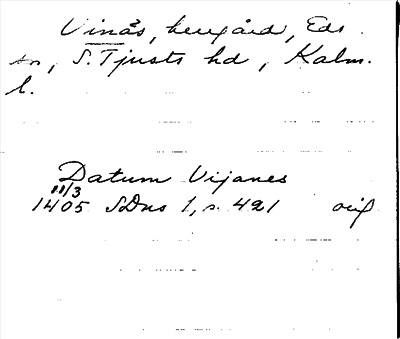 Vinås, herrgård, Eds
sn, S. Tjusts hd, Kalm.
l.
Datum Vijanes
11/3
1405 SDns 1, s. 421 orig